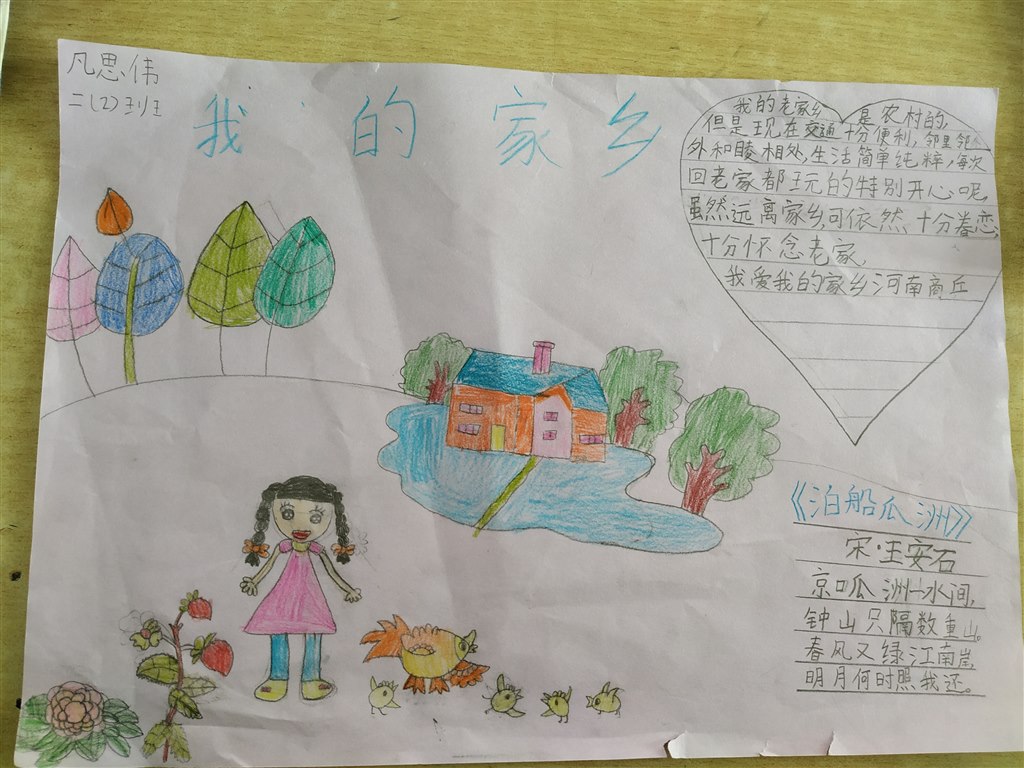 凡思伟
二(2)班
我的家乡
我的老家乡是农村的,
但是现在交通十分便利,邻里邻
外和睦相处,生活简单纯粹,每次
回老家都玩的特别开心呢,
虽然远离家乡,可依然十分眷恋,
十分怀念老家,
我爱我的家乡河南商丘
《泊船瓜洲》
宋·王安石
京口呱洲一水间,
钟山只隔数重山。
春风又绿江南岸,
明月何时照我还。